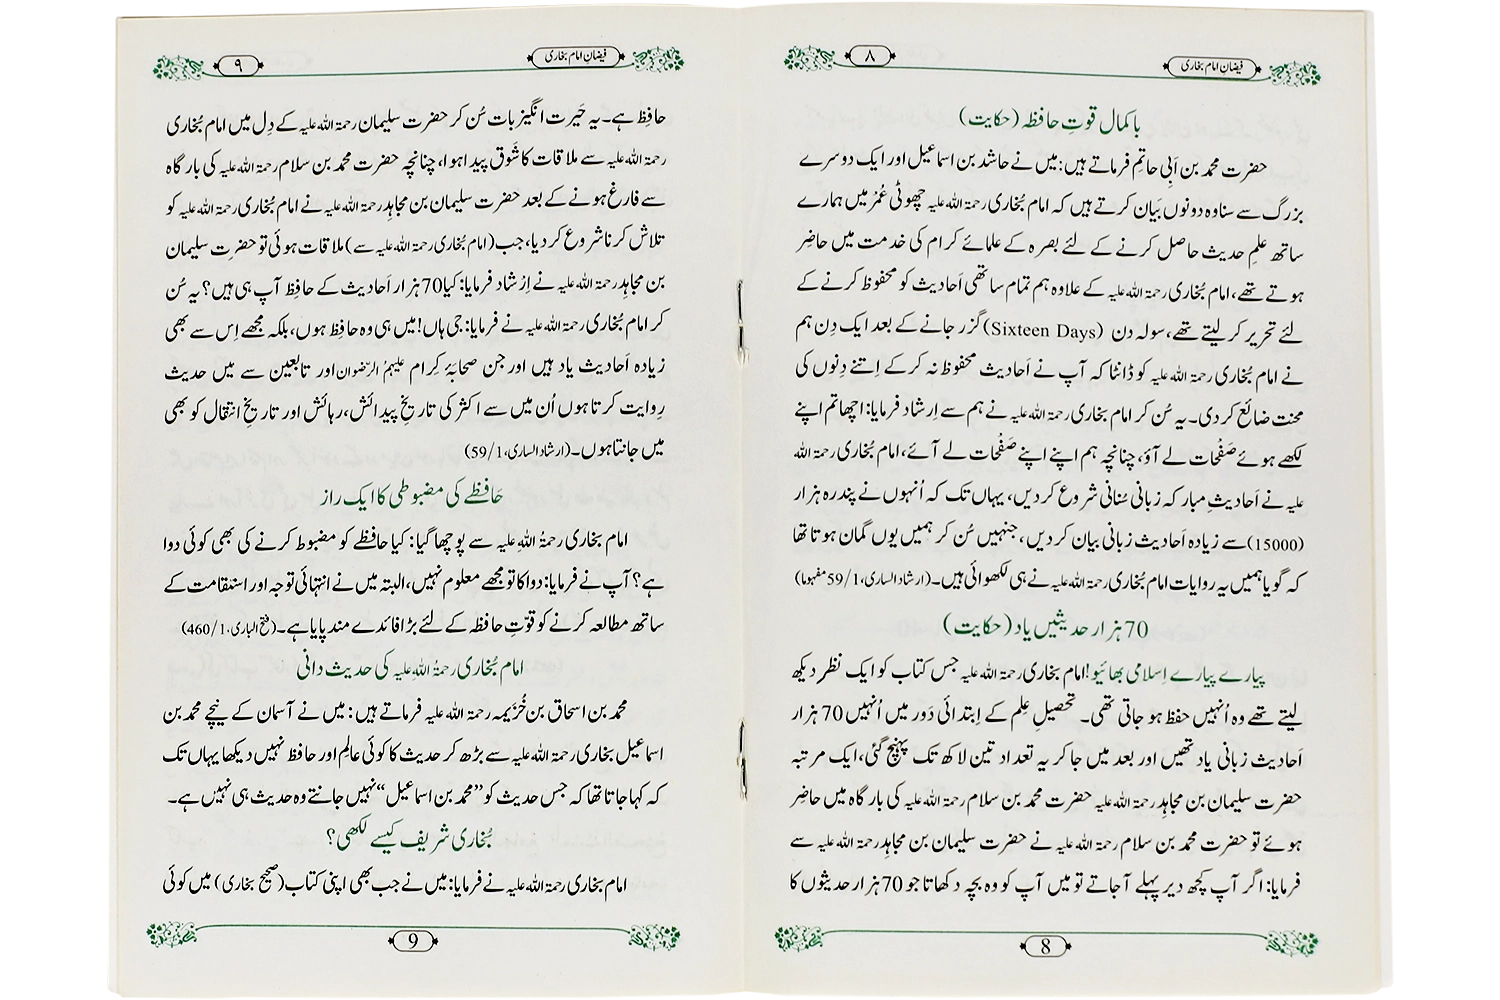 فیضانِ امام بخاری
۸
باکمال قوتِ حافظہ (حکایت)
حضرت محمد بن اَبِی حاتم فرماتے ہیں: میں نے حاشد بن اسماعیل اور ایک دوسرے
بزرگ سے سنا وہ دونوں بَیان کرتے ہیں کہ امام بُخاری رحمۃ اللہ علیہ چھوٹی عُمْر میں ہمارے
ساتھ علمِ حدیث حاصل کرنے کے لئے بصرہ کے علمائے کرام کی خدمت میں حاضِر
ہوتے تھے، امام بُخاری رحمۃ اللہ علیہ کے علاوہ ہم تمام ساتھی اَحادیث کو محفوظ کرنے کے
لئے تحریر کرلیتے تھے، سولہ دن (Sixteen Days) گزر جانے کے بعد ایک دِن ہم
نے امام بُخاری رحمۃ اللہ علیہ کو ڈانٹا کہ آپ نے اَحادیث محفوظ نہ کرکے اِتنے دِنوں کی
محنت ضائع کردی۔ یہ سُن کر امام بخاری رحمۃ اللہ علیہ نے ہم سے اِرشاد فرمایا: اچھا تم اپنے
لکھے ہوئے صَفْحات لے آؤ، چنانچہ ہم اپنے اپنے صَفْحات لے آئے، امام بُخاری رحمۃ اللہ
علیہ نے اَحادیثِ مبارکہ زبانی سُنانی شروع کردیں، یہاں تک کہ اُنہوں نے پندرہ ہزار
(15000) سے زیادہ اَحادیث زبانی بیان کردیں، جنہیں سُن کر ہمیں یوں گمان ہوتا تھا
کہ گویا ہمیں یہ روایات امام بُخاری رحمۃ اللہ علیہ نے ہی لکھوائی ہیں۔ (ارشاد الساری، 59/1 مفہوما)
70 ہزار حدیثیں یاد (حکایت)
پیارے پیارے اِسلامی بھائیو! امام بخاری رحمۃ اللہ علیہ جس کتاب کو ایک نظر دیکھ
لیتے تھے وہ اُنہیں حفظ ہوجاتی تھی۔ تحصیلِ عِلم کے اِبتدائی دَور میں اُنہیں 70 ہزار
اَحادیث زبانی یاد تھیں اور بعد میں جاکر یہ تعداد تین لاکھ تک پہنچ گئی، ایک مرتبہ
حضرت سلیمان بن مجاہد رحمۃ اللہ علیہ حضرت محمد بن سلام رحمۃ اللہ علیہ کی بارگاہ میں حاضِر
ہوئے تو حضرت محمد بن سلام رحمۃ اللہ علیہ نے حضرت سلیمان بن مجاہد رحمۃ اللہ علیہ سے
فرمایا: اگر آپ کچھ دیر پہلے آجاتے تو میں آپ کو وہ بچہ دکھاتا جو 70 ہزار حدیثوں کا
8
فیضانِ امام بخاری
۹
حافِظ ہے۔ یہ حَیرت انگیز بات سُن کر حضرت سلیمان رحمۃ اللہ علیہ کے دِل میں امام بُخاری
رحمۃ اللہ علیہ سے ملاقات کا شَوق پیدا ہوا، چنانچہ حضرت محمد بن سلام رحمۃ اللہ علیہ کی بارگاہ
سے فارغ ہونے کے بعد حضرت سلیمان بن مجاہد رحمۃ اللہ علیہ نے امام بُخاری رحمۃ اللہ علیہ کو
تلاش کرنا شروع کردیا، جب (امام بُخاری رحمۃ اللہ علیہ سے) ملاقات ہوئی تو حضرتِ سلیمان
بن مجاہِد رحمۃ اللہ علیہ نے اِرْشاد فرمایا: کیا 70 ہزار اَحادیث کے حافِظ آپ ہی ہیں؟ یہ سُن
کر امام بُخاری رحمۃ اللہ علیہ نے فرمایا: جی ہاں! میں ہی وہ حافِظ ہوں، بلکہ مجھے اِس سے بھی
زیادہ اَحادیث یاد ہیں اور جن صحابۂ کِرام علیہمُ الرِّضوان اور تابعین سے میں حدیث
رِوایت کرتا ہوں اُن میں سے اکثر کی تاریخِ پیدائش، رہائش اور تاریخِ انتقال کو بھی
میں جانتا ہوں۔ (ارشاد الساری، 59/1)
حَافِظے کی مضبوطی کا ایک راز
امام بخاری رحمۃُ اللہ علیہ سے پوچھا گیا: کیا حافِظے کو مضبوط کرنے کی بھی کوئی دوا
ہے؟ آپ نے فرمایا: دوا کا تو مجھے معلوم نہیں، البتہ میں نے انتہائی توجہ اور استقامت کے
ساتھ مطالعہ کرنے کو قوّتِ حافظہ کے لئے بڑا فائدے مند پایا ہے۔ (فتح الباری، 460/1)
امام بُخاری رحمۃُ اللہِ علیہ کی حدیث دانی
محمد بن اسحاق بن خُزَیمہ رحمۃ اللہ علیہ فرماتے ہیں: میں نے آسمان کے نیچے محمد بن
اسماعیل بخاری رحمۃ اللہ علیہ سے بڑھ کر حدیث کا کوئی عالِم اور حافظ نہیں دیکھا یہاں تک
کہ کہا جاتا تھا کہ جس حدیث کو ”محمد بن اسماعیل“ نہیں جانتے وہ حدیث ہی نہیں ہے۔
بُخاری شریف کیسے لکھی؟
امام بخاری رحمۃ اللہ علیہ نے فرمایا: میں نے جب بھی اپنی کتاب (صحیح بخاری) میں کوئی
9